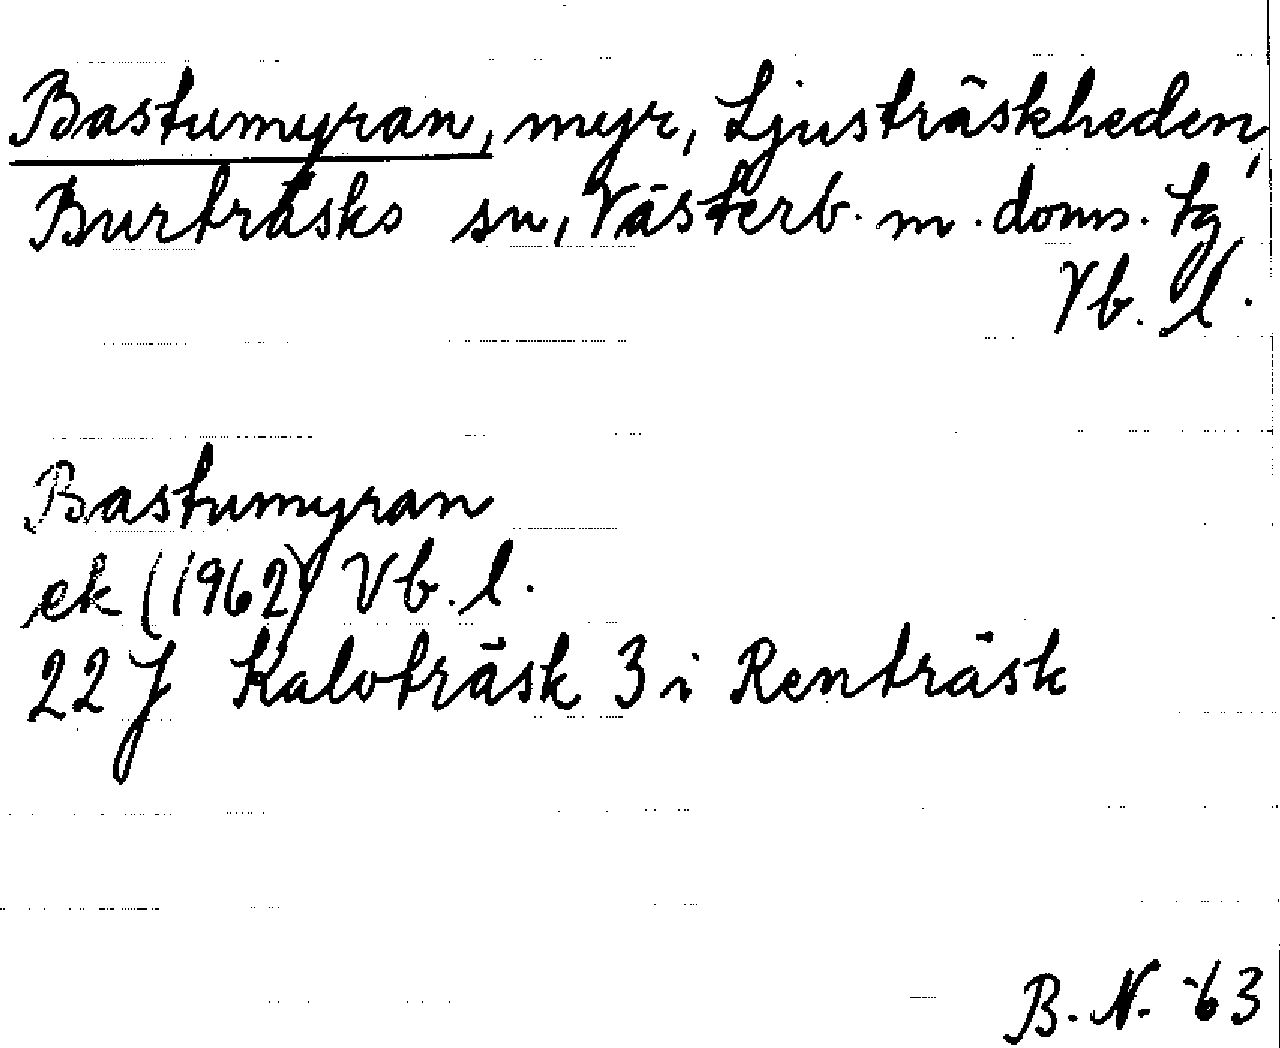 Bastumyran, myr, Ljusträskheden,
Burträsks sn, Västerb. m. doms. tg
Vb. l.
Bastumyran
ek (1962) Vb. l.
22 J Kalvträsk 3 i Renträsk
B. N. -63